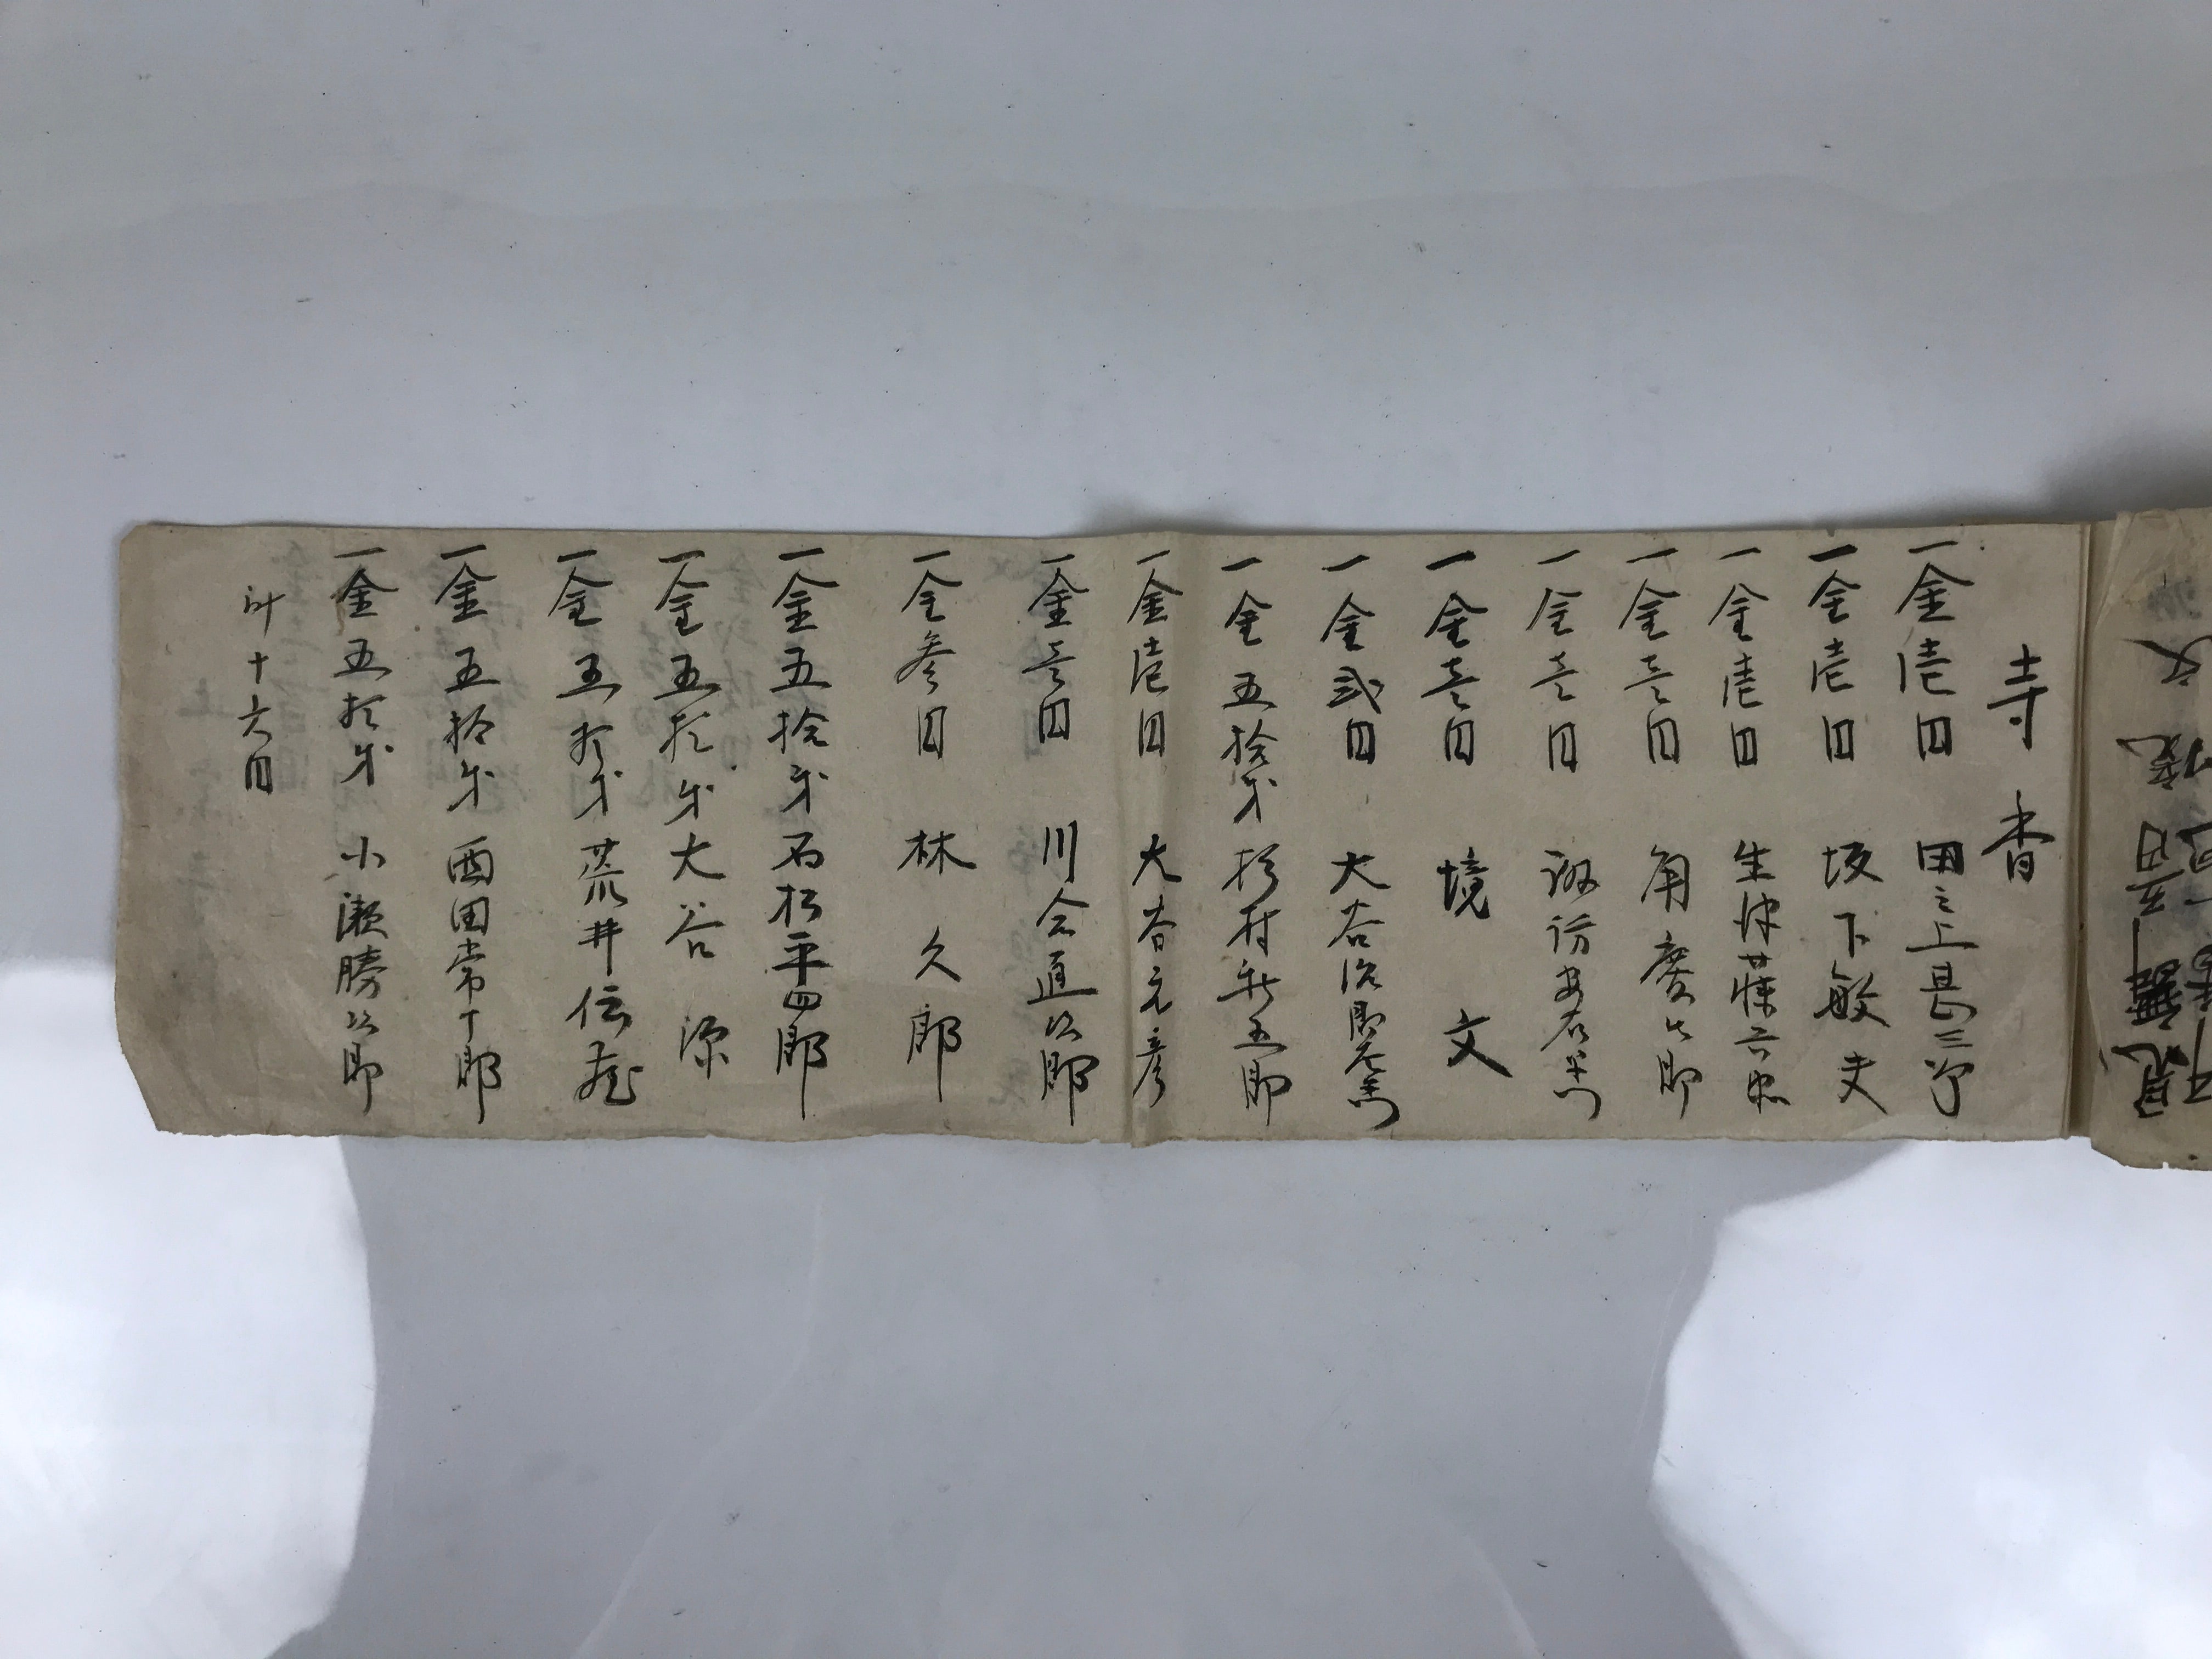 寺香
一金壱円 田之上甚三郎
一金壱円 坂下敏夫
一金壱円 生津藤
一金壱円 角慶七郎
一金壱円 諏訪安右衛門
一金壱円 境文
一金弐円 大谷治郎左衛門
一金五拾戋 杉村新五郎
一金壱円 大谷元彦
一金壱円 川合直次郎
一金参円 林久郎
一金五拾戋 石松平四郎
一金五拾戋 大谷源
一金五拾戋 荒井伝蔵
一金五拾戋 西田常丁郎
一金五拾戋 小瀬勝次郎
計十六円